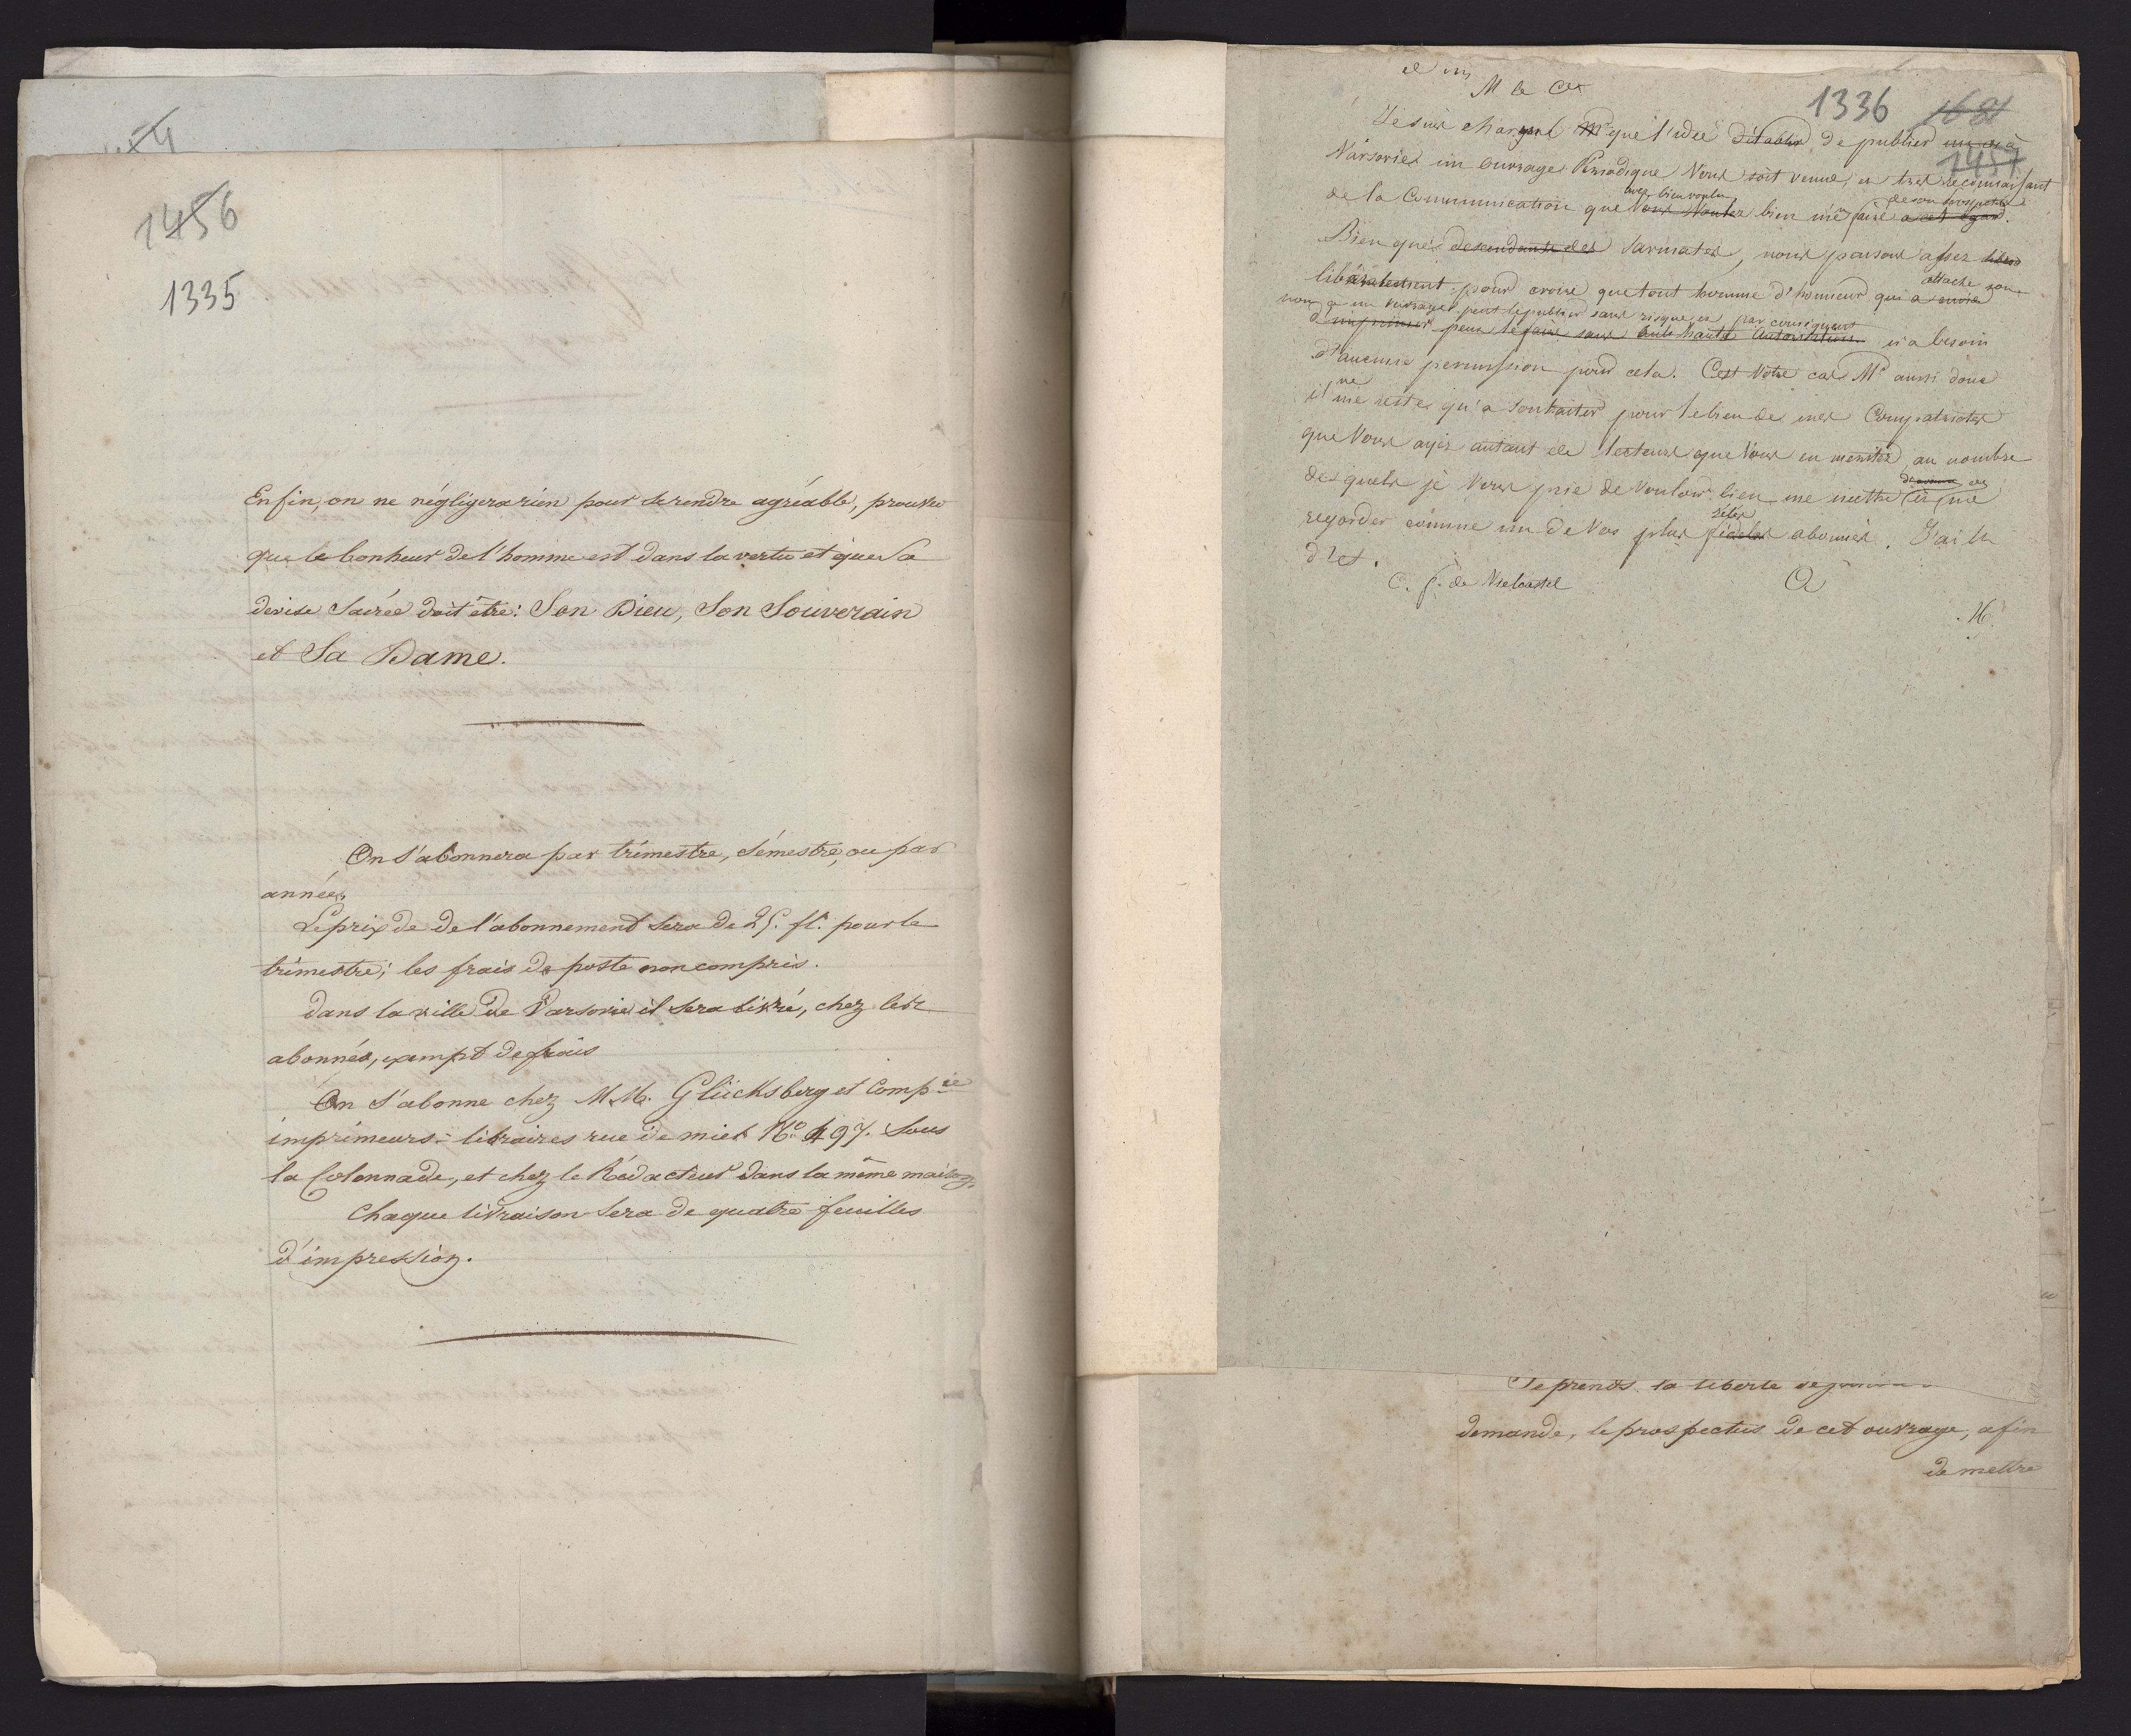 1456
1335
Enfin, on ne négligera rien pour se rendre agréable, prouver
que le bonheur de l'homme est dans la vertu et que sa
devise Sacrée doit être: Son Dieu, Son Souverain
et Sa Dame.
On s'abonnera par trimestre, sémestre, ou par
année,
Le prix de de l'abonnement sera de 25. fl. pour le
trimestre; les frais de poste non compris.
dans la ville de Varsovie il sera livré, chez les
abonnés, exempt de frais
On s'abonne chez M.M. Glücksberg et Comp.ie
imprimeurs-libraires rue de miel No 497. sous
la Colonnade, et chez le Rédacteur dans la même maison.
Chaque livraison sera de quatre feuilles
d'impression.
M le Cte
1336
Je suis charmé Mr que l'idée d'établir de publier à
1457
Varsovie un ouvrage Périodique Vous soit venue, et tres reconnaissant
avez bien voulu
de son prospectus
de la Communication que Vous Voulez bien me faire a cet égard.
Bien que descendants des Sarmates, nous pensons assez
attache son
libéralement pour croire que tout homme d'honneur qui a envie
nom a un ouvrage peut le publier sans risque, et par conséquent
d'imprimer peut le faire sans haute autorisation n'a besoin
d'aucune permission pour cela. C'est Votre cas Mr aussi donc
il ne me reste qu'a souhaiter pour le bien de mes Compatriotes
que Vous ayiez autant de lecteurs que Vous en meritez, au nombre
desquels je Vous prie de vouloir bien me mettre et me
zélés
regarder comme un de Vos plus fidèles abonnés. J'ai l'h
d'et.
C. J. de Vielcastel
Je prends la liberté de
demande, le prospectus de cet ouvrage, afin
de mettre